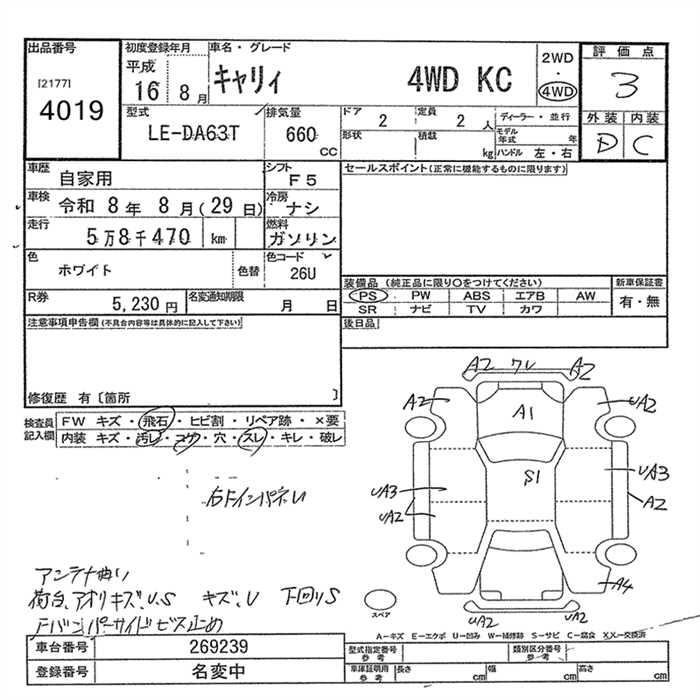 出品番号 初度登録年月 車名・グレード 評価点
[2177]
4019
平成 16 8 月 キャリィ 4WD KC 2WD・4WD 3
型式 LE-DA63T 排気量 660 CC
ドア 2 定員 2 人 ディーラー・並行 外装 内装
形状 積載 kg モデル年式 年 ハンドル 左・右 D C
車歴 自家用 シフト F5 セールスポイント(正常に機能するものに限ります)
車検 令和 8 年 8 月(29 日) 冷房 ナシ
走行 5万8千470 km 燃料 ガソリン
色 ホワイト 色替 色コード 26U
装備品 (純正品に限り○をつけてください) 新車保証書
PS PW ABS エアB AW 有・無
SR ナビ TV カワ
R券 5,230 円 名変通知期限 月 日
注意事項申告欄(不具合内容等は具体的に記入して下さい) 後日品
修復歴 有〔箇所 〕
検査員記入欄 FW キズ・飛石・ヒビ割・リペア跡・×要
内装 キズ・汚レ・コゲ・穴・スレ・キレ・破レ
A2 ワレ A2
A2 A1 UA2
S1
UA3 UA3
UA2 A2
A4
UA2 UA2
スペア
アンテナ曲い
荷台、アオリキズ、U、S キズ、U 下回りS
Fバンパーサイドビス止め
A-キズ E-エクボ U-凹み W-補修跡 S-サビ C-腐食 X,X-交換済
車台番号 269239 型式指定番号 参考 類別区分番号 参考
登録番号 名変中 車庫証明用 参考 長さ cm 幅 cm 高さ cm